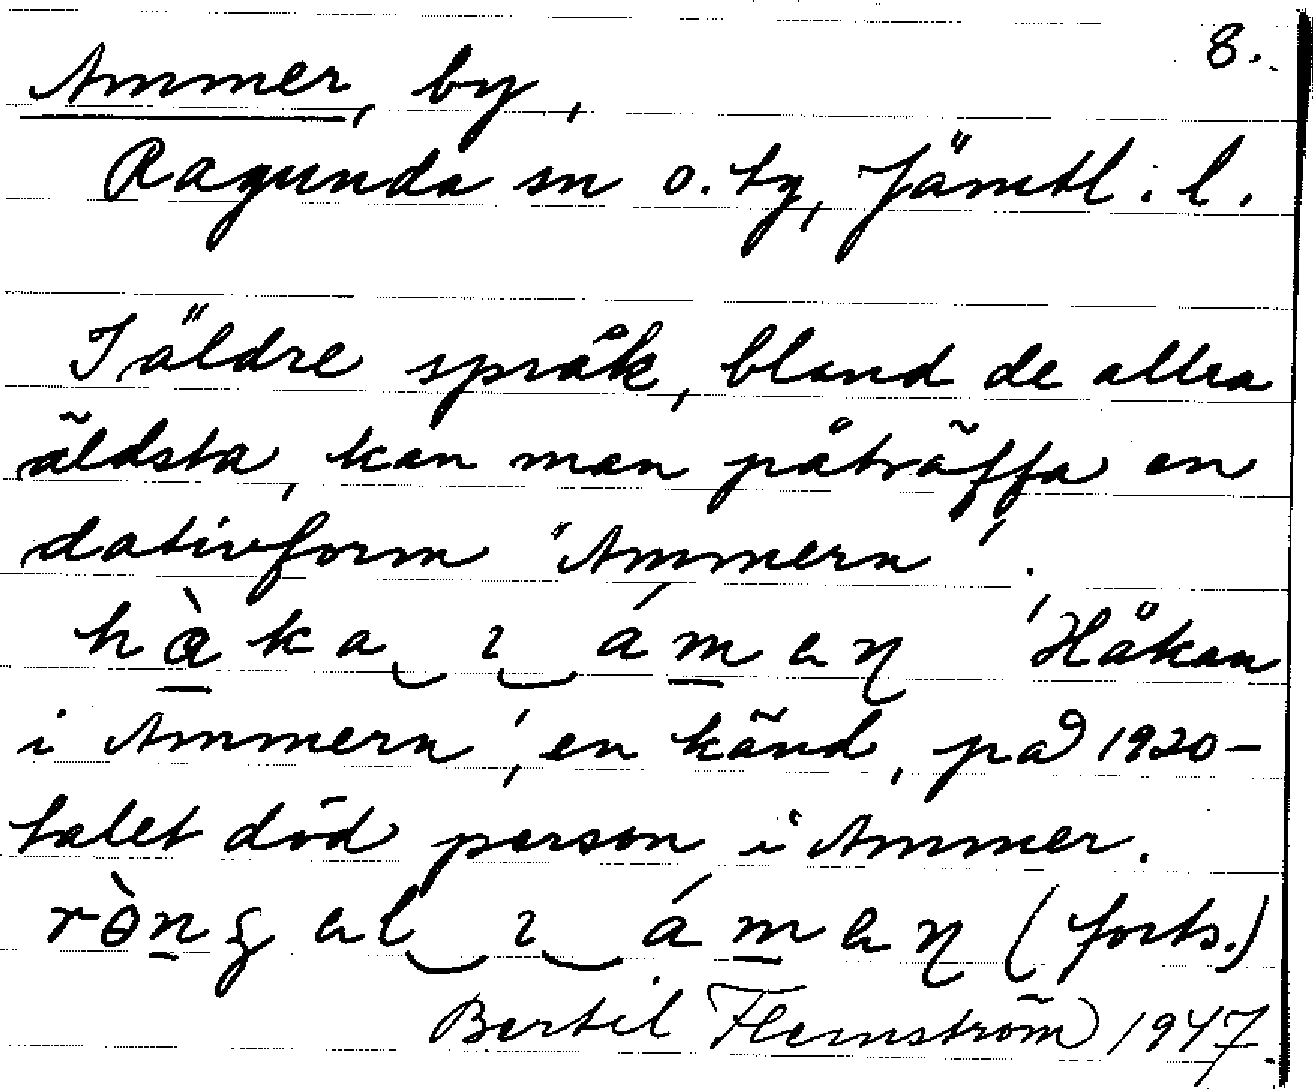 8.
Ammer, by,
Ragunda sn o. tg, Jämtl. l.
I äldre språk, bland de allra
äldsta, kan man påträffa en
dativform "Ammern".
'Håkan
i Ammern', en känd, på 1920-
talet död person i Ammer.
(forts.)
Bertil Flemström 1947.